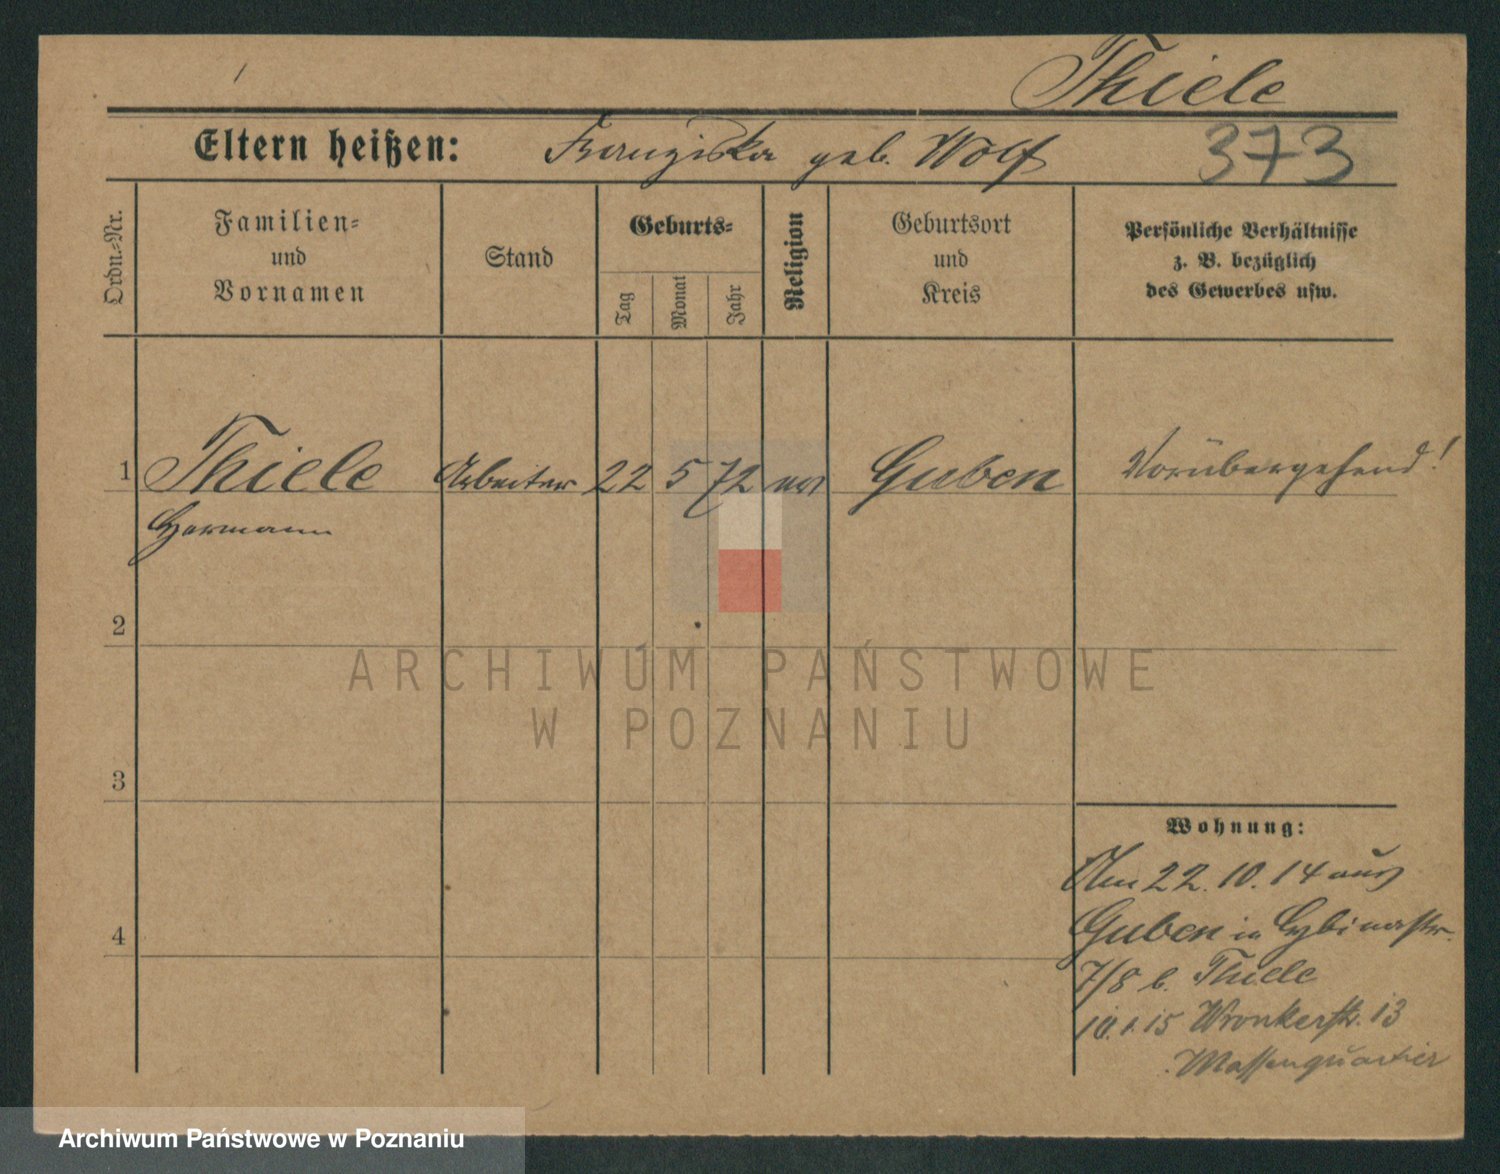 Thiele
Eltern heißen: Franziska geb. Wolf 373
Ordn.-Nr.
Familien-
und
Vornamen
Stand
Geburts-
Tag
Monat
Jahr
Religion
Geburtsort
und
Kreis
Persönliche Verhältnisse
z. B. bezüglich
des Gewerbes usw.
1 Thiele Arbeiter 22 5 72 Guben Vorübergehend!
Hermann
2
3
4
Wohnung:
Am 22.10.14 aus
Guben in Cybinastr.
7/8 b. Thiele
10.1.15 Wronkerstr. 13
Massenquartier
ARCHIWUM PAŃSTWOWE
W POZNANIU
Archiwum Państwowe w Poznaniu